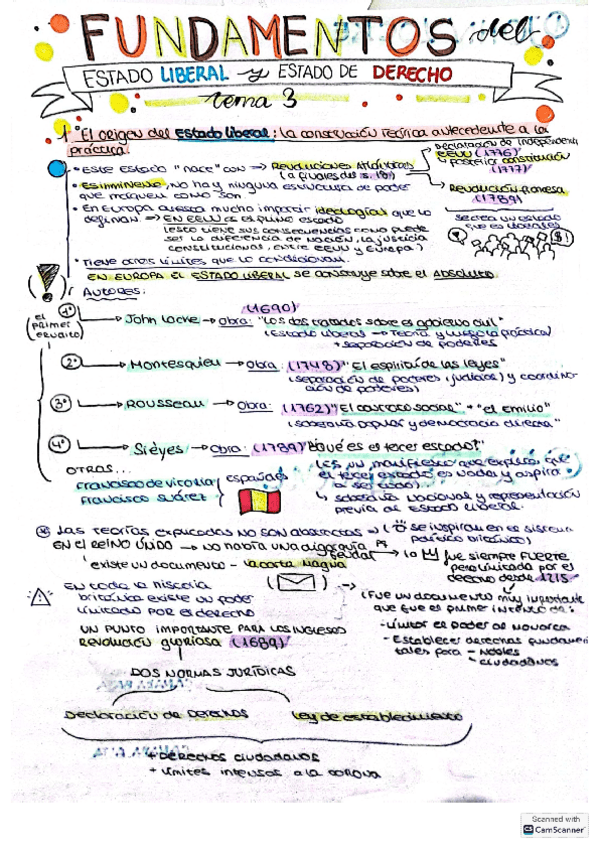 FUNDAMENTOS del
ESTADO LIBERAL y ESTADO DE DERECHO
tema 3
1. El origen del Estado liberal: la construcción teórica antecedente a la
práctica.
• Este Estado "nace" con → Revoluciones Atlánticas
(a finales del s. 18)
Declaración de Independencia
EEUU (1776)
y posterior constitución
(1777)
Revolución francesa
(1789)
• Es imminente, no hay ninguna estructura de poder
que marquen como son.
• En Europa cuesta mucho imponer ideologías que lo
definan. → EN EEUU ES EL PURO ESTADO
(esto tiene sus consecuencias como puede
ser la diferencia de nación, la justicia
constitucional, entre EEUU y Europa)
se crea un estado
que es liberales
• Tiene otros límites que lo condicionan.
EN EUROPA EL ESTADO LIBERAL se construye sobre el Absoluto.
AUTORES:
(1690)
1º John Locke → Obra: "Los dos tratados sobre el gobierno civil"
(Estado liberal → Teoría y luego la práctica)
+ separación de poderes
El
primer
erudito
2º Montesquieu → Obra: (1748) "El espíritu de las leyes"
(separación de poderes (judicial) y coordinar
ción de poderes)
3º Rousseau → Obra: (1762) "El contrato social" + "el Emilio"
(soberanía popular y democracia directa)
4º Siéyes → Obra: (1789) "¿Qué es el tercer estado?"
(Es un manifiesto que explica que
el tercer estado es nada y aspira
a ser todo)
↳ soberanía nacional y representación
previa al Estado Liberal.
OTROS...
Francisco de Vitoria
Francisco Suárez
españa
Las teorías explicadas NO SON abstractas → ( se inspiran en el sistema
político británico)
EN EL REINO UNIDO → NO había una oligarquía
feudal
→ la fue siempre FUERTE
pero limitada por el
derecho desde 1215
existe un documento - la carta Magna
EN toda la historia
británica existe un poder
limitado POR el derecho
(Fue un documento muy importante
que fue el primer intento de:
- Limitar el poder al Monarca
- Establecer derechos fundamen
tales para - Nobles
- ciudadanos
UN PUNTO IMPORTANTE PARA LOS INGLESES
REVOLUCIÓN gloriosa (1689)
DOS NORMAS JURÍDICAS
Declaración de Derechos
Ley de establecimiento
+ DERECHOS ciudadanos
+ límites intensos a la corona
Scanned with
CamScanner